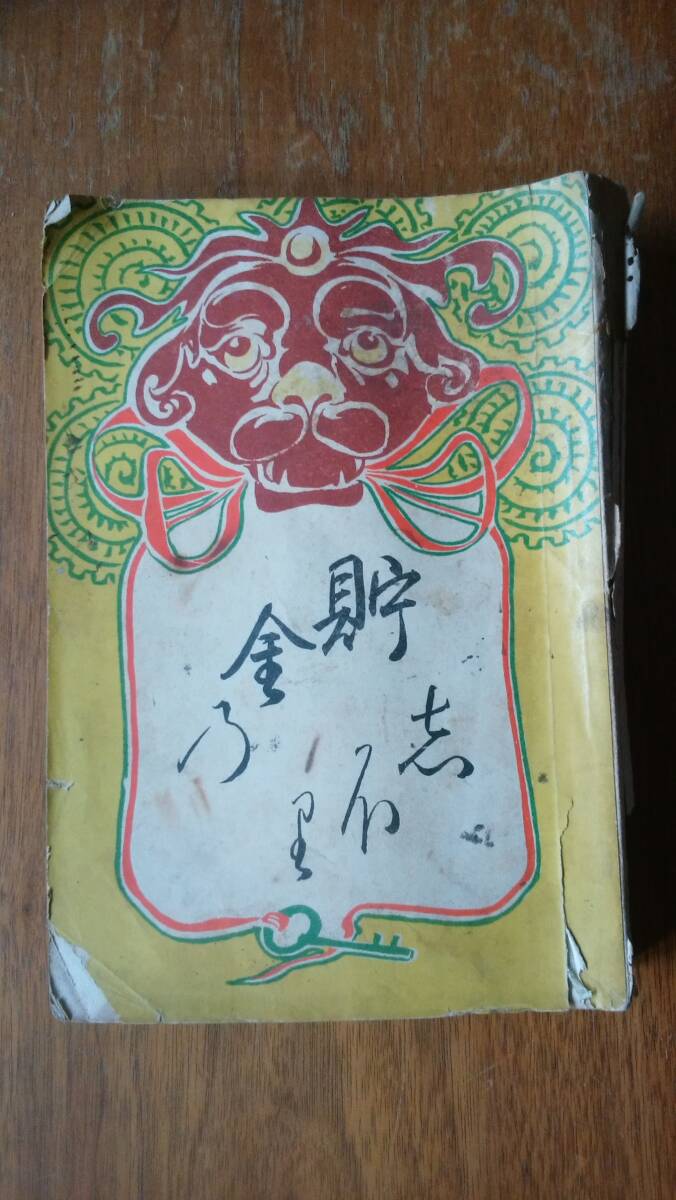 貯金乃
志 里